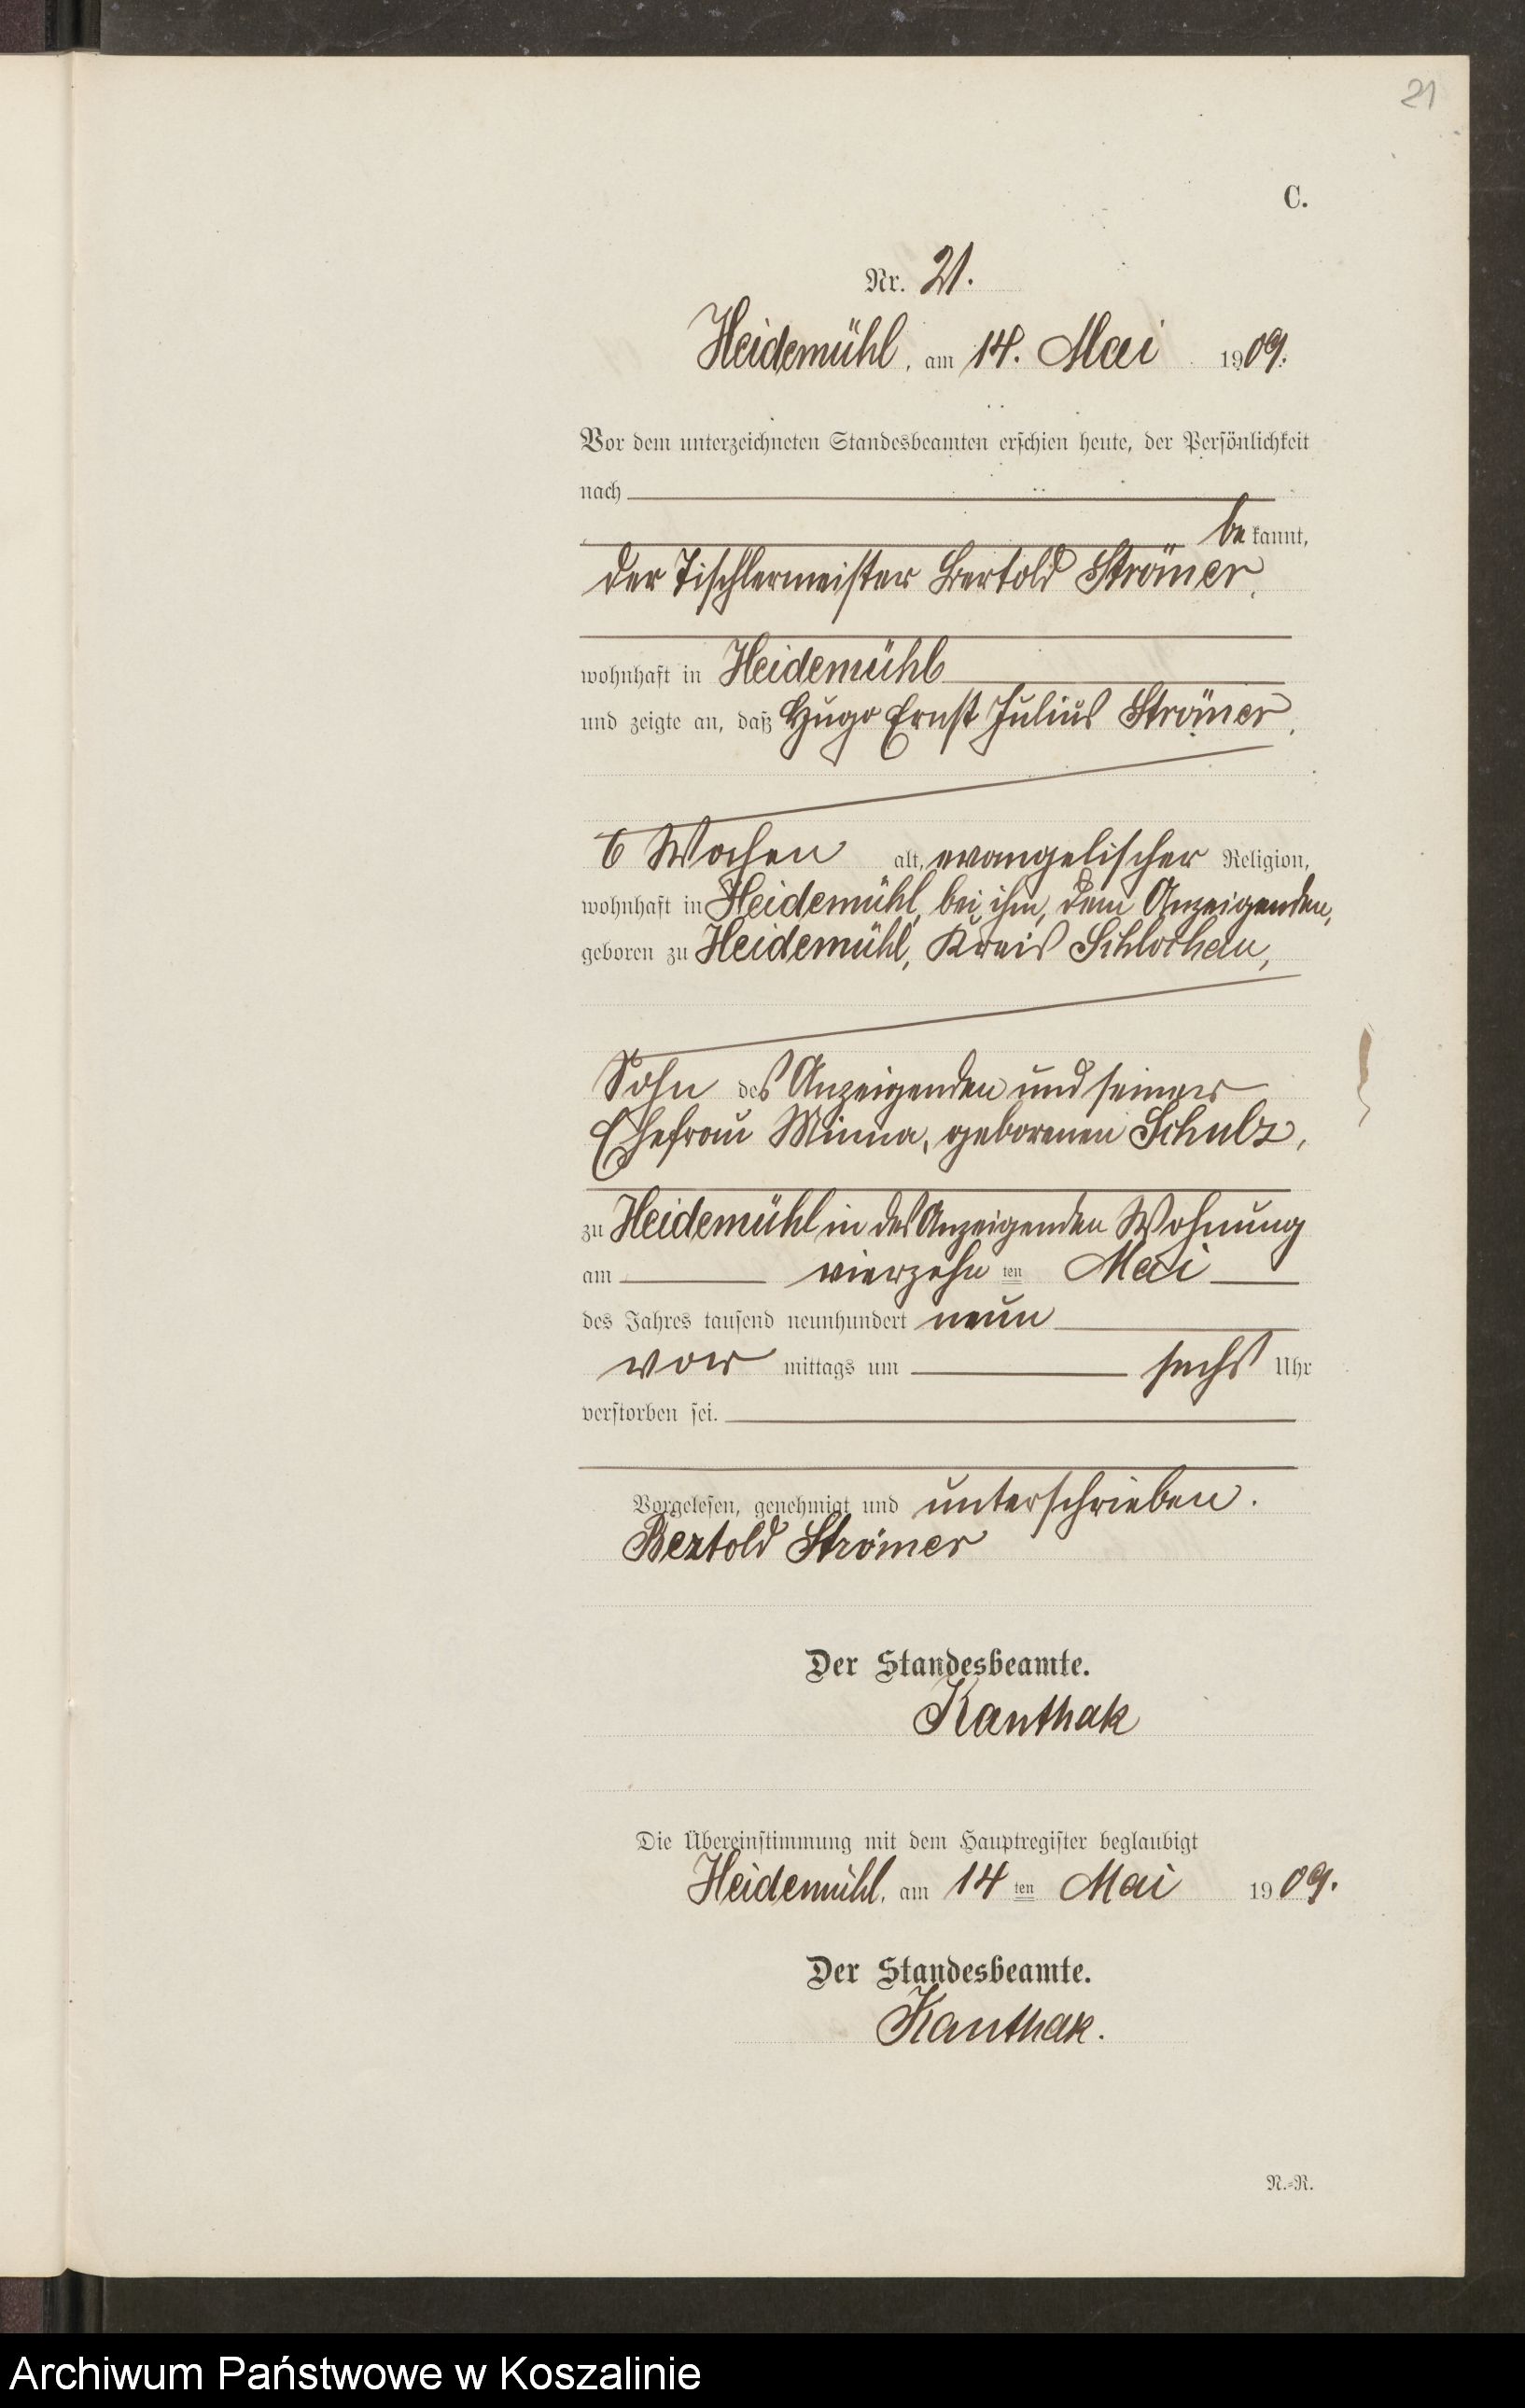 21
C.
Nr. 21.
Heidemühl, am 14. Mai 1909.
Vor dem unterzeichneten Standesbeamten erschien heute, der Persönlichkeit
nach
bekannt,
der Tischlermeister Bertold Strömer,
wohnhaft in Heidemühl
und zeigte an, daß Hugo Ernst Julius Strömer,
6 Wochen alt, evangelischer Religion,
wohnhaft in Heidemühl, bei ihm, dem Anzeigenden,
geboren zu Heidemühl, Kreis Schlochau,
Sohn des Anzeigenden und seiner
Ehefrau Minna, geborenen Schulz,
zu Heidemühl in des Anzeigenden Wohnung
am vierzehnten Mai
des Jahres tausend neunhundert neun
vor mittags um sechs Uhr
verstorben sei.
Vorgelesen, genehmigt und unterschrieben.
Bertold Strömer
Der Standesbeamte.
Kanthak
Die Übereinstimmung mit dem Hauptregister beglaubigt
Heidemühl, am 14ten Mai 1909.
Der Standesbeamte.
Kanthak.
N.=R.
Archiwum Państwowe w Koszalinie